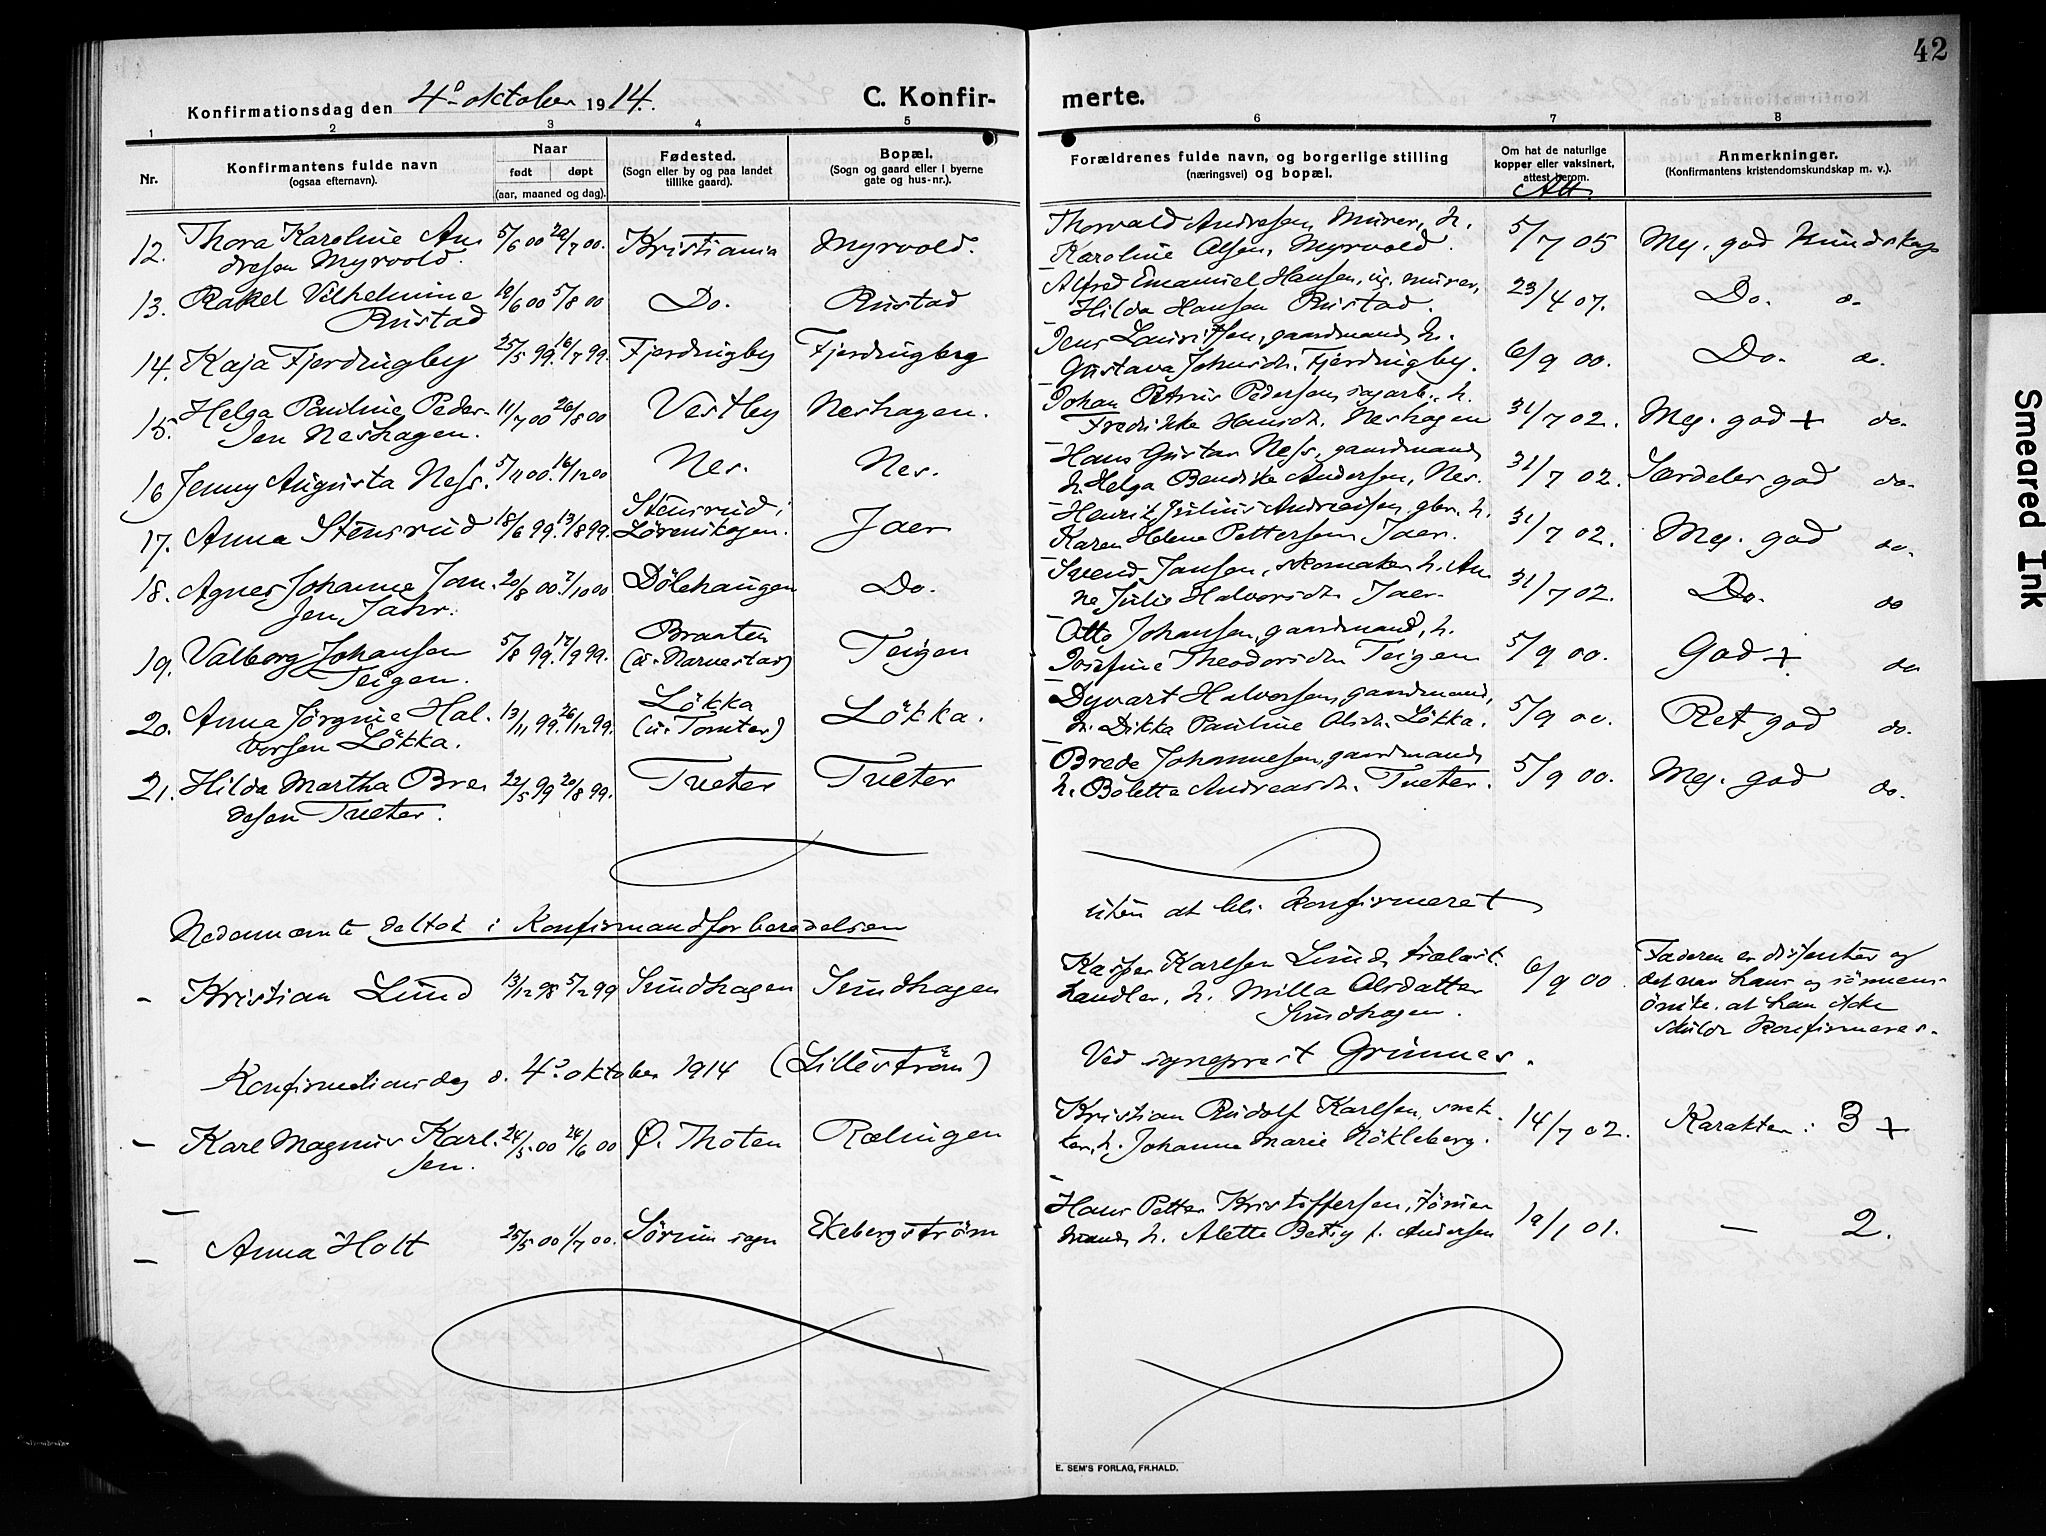 42
Konfirmationsdag den 4de oktober 1914. C. Konfir-
merte.
1 2 3 4 5
6 7 8
Nr.
Konfirmantens fulde navn
(ogsaa efternavn).
Naar
født døpt
(aar, maaned og dag).
Fødested.
(Sogn eller by og paa landet
tillike gaard).
Bopæl.
(Sogn og gaard eller i byerne
gate og hus-nr.).
Forældrenes fulde navn, og borgerlige stilling
(næringsvei) og bopæl.
Om hat de naturlige
kopper eller vaksinert,
attest herom.
Att.
Anmerkninger.
(Konfirmantens kristendomskundskap m. v.).
12. Thora Karoline An- 5/6 00 29/7 00. Kristiania Myrvold.
dresen Myrvold.
Thorvald Andresen, murer, h.
Karoline Olsen, Myrvold. 5/7 05 Meg. god kundskap
13. Rakel Vilhelmine 19/6 00 5/8 00 Do. Rustad
Rustad
Alfred Emanuel Hansen, ug. murer,
Hilda Hansen Rustad. 23/4 07. Do. do.
14. Kaja Fjerdingby 25/5 99. 16/7 99. Fjerdingby Fjerdingby
Jens Lauritsen, gaardmand, h.
Gustava Johnsdr. Fjerdingby. 6/9 00. Do. do.
15. Helga Pauline Peder- 11/7 00 26/8 00 Vestby Neshagen.
sen Neshagen.
Johan Petrus Pedersen, sagarb., h.
Fredrikke Hansdr. Neshagen 31/7 02. Meg. god + do.
16 Jenny Augusta Ness. 5/11 00. 16/12 00 Nes. Nes.
Hans Gustav Ness, gaardmand
h. Helga Bendikte Andersen, Nes. 31/7 02. Særdeles god do.
17. Anna Stensrud 18/6 99. 13/8 99. Stensrud i
Lørenskogen. Jaer
Henrik Julius Andreasen, gbr. h.
Karen Helene Pettersen Jaer. 31/7 02. Meg. god do.
18. Agnes Johanne Jan- 20/8 00. 7/10 00 Dölehaugen Do.
sen Jahr.
Svend Jansen, skomaker h. An-
ne Julie Halvorsdr. Jaer. 31/7 02. Do. do
19. Valborg Johansen 5/8 99. 17/9 99. Braaten
(u. Narvestad) Teigen
Teigen.
Otto Johansen, gaardmand, h.
Josefine Theodorsdr. Teigen 5/9 00. God + do
20. Anna Jörgine Hal- 13/11 99. 26/12 99. Lökka
(u. Tomter) Lökka.
vorsen Lökka.
Dyvart Halvorsen, gaardmand,
h. Dikka Pauline Olsdr. Lökka. 5/9 00. Ret god do.
21. Hilda Martha Bre- 22/5 99 20/8 99. Tueter Tueter
desen Tueter.
Brede Johannesen, gaardmand
h. Bolette Andreasdr. Tueter. 5/9 00. Meg. god do.
Nedennævnte deltok i Konfirmandforberedelsen
uten at bli konfirmeret
- Kristian Lund 13/12 98 5/2 99 Sundhagen Sundhagen
Kasper Karlsen Lund, trælast-
handler, h. Milla Olsdatter
Sundhagen. 6/9 00
Faderen er dissenter og
det var hans og sönnens
önske, at han ikke
skulde konfirmeres.
Konfirmationsdag d. 4de oktober 1914 (Lilleström)
Ved sogneprest Grimnes.
- Karl Magnus Karl- 24/5 00 24/6 00 Ø. Thoten Rælingen
sen.
Kristian Rudolf Karlsen, snek-
ker, h. Johanne Marie Nökleberg. 14/7 02. Karakter: 3 +
- Anna Holt 25/5 00 1/7 00. Sørum sogn Ekebergstrøm
Hans Petter Kristoffersen, tömmer-
mand, h. Alette Betzy f. Andersen 19/1 01. - 2.
E. SEM'S FORLAG, FR.HALD.
Smeared Ink